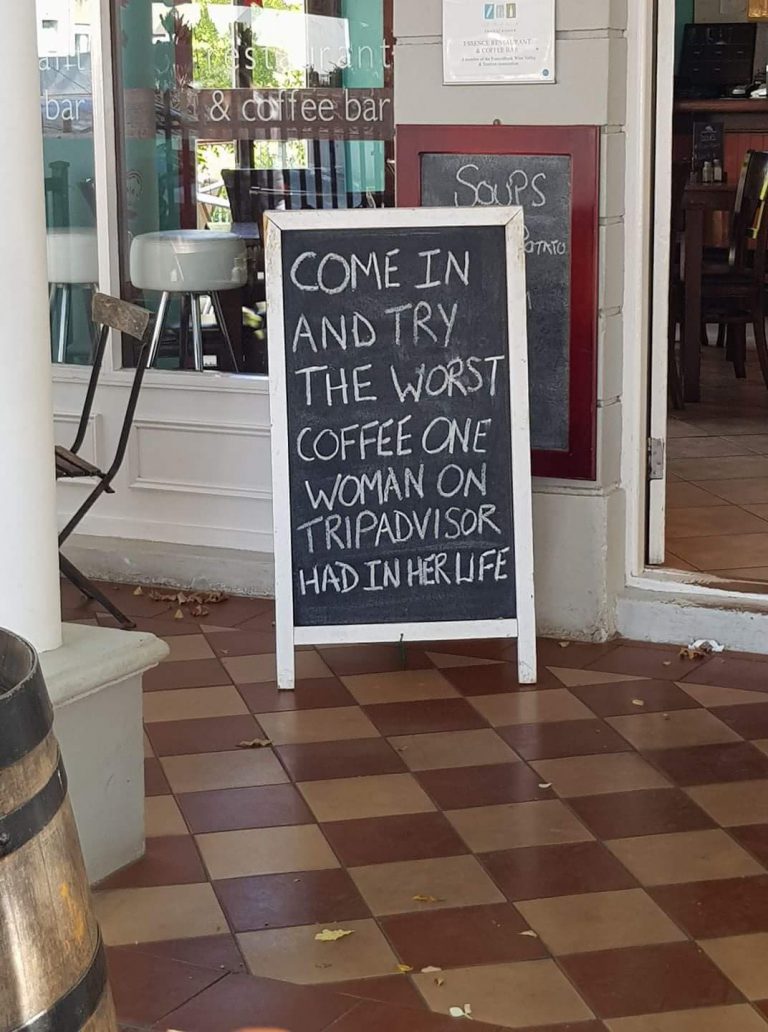 restaurant
bar
& coffee bar
ESSENCE RESTAURANT
& COFFEE BAR
SOUPS
COME IN
AND TRY
THE WORST
COFFEE ONE
WOMAN ON
TRIPADVISOR
HAD IN HER LIFE